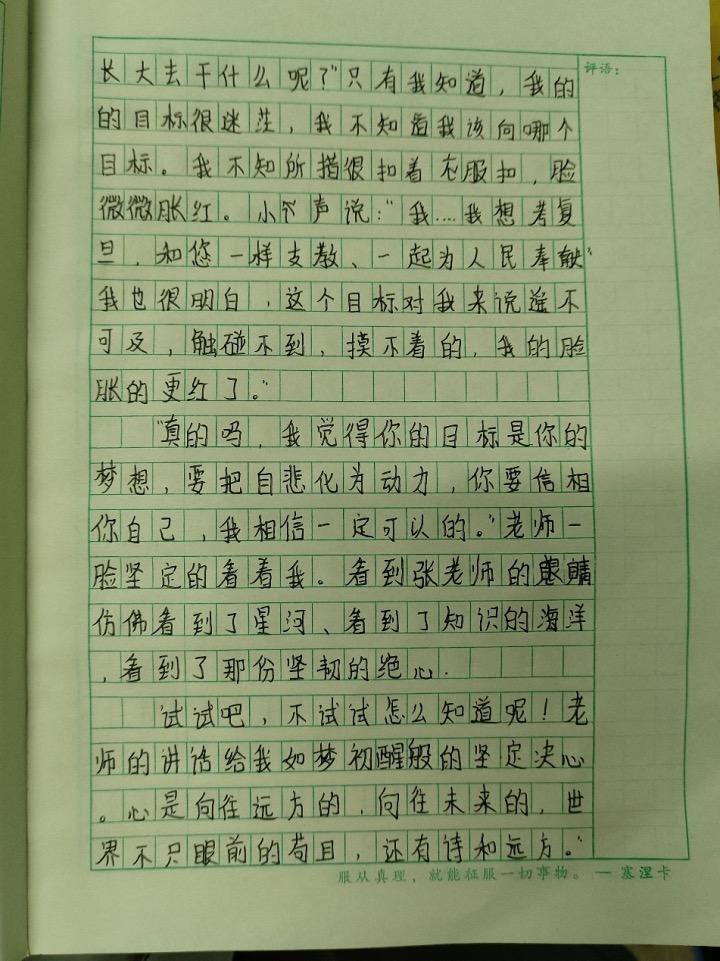 评语：
长大去干什么呢？"只有我知道，我的
的目标很迷茫，我不知道我该向哪个
目标。我不知所措很扣着衣服扣，脸
微微胀红。小个声说："我....我想考复
旦，和您一样支教、一起为人民奉献"
我也很明白，这个目标对我来说遥不
可及，触碰不到，摸不着的，我的脸
胀的更红了。"
"真的吗，我觉得你的目标是你的
梦想，要把自悲化为动力，你要信相
你自己，我相信一定可以的。"老师一
脸坚定的看着我。看到张老师的眼睛
仿佛看到了星河、看到了知识的海洋
，看到了那份坚韧的绝心.
试试吧，不试试怎么知道呢！老
师的讲话给我如梦初醒般的坚定决心
。心是向往远方的，向往未来的，世
界不只眼前的苟且，还有诗和远方。"
服从真理，就能征服一切事物。 — 塞涅卡